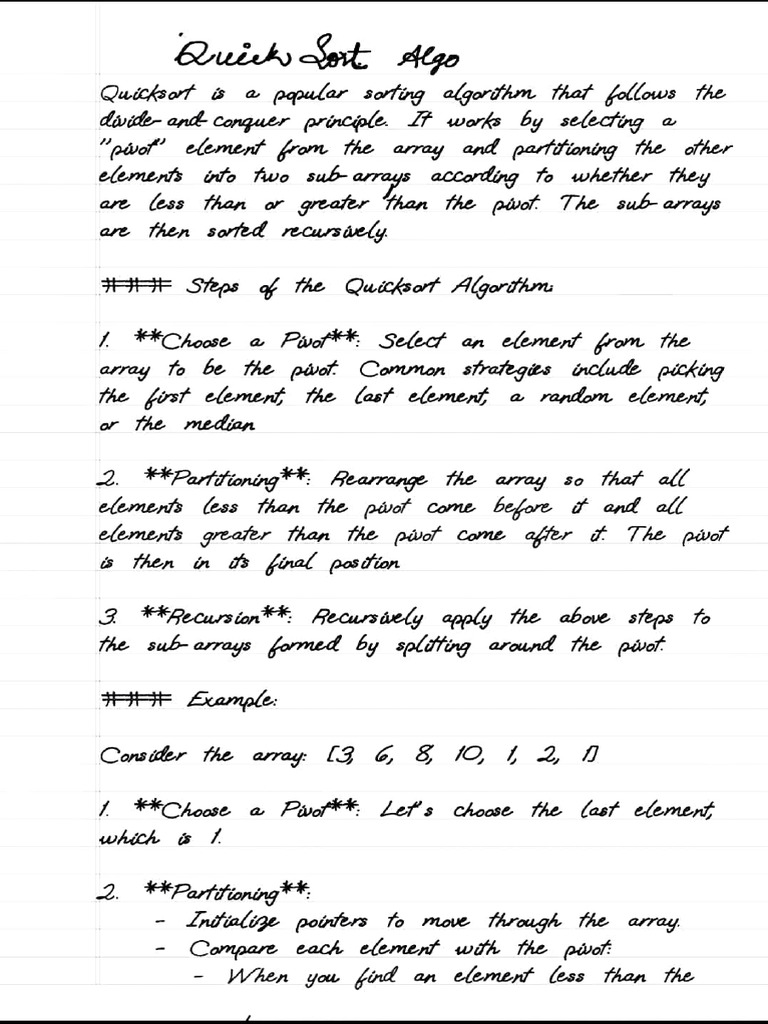 Quick Sort Algo
Quicksort is a popular sorting algorithm that follows the
divide-and-conquer principle. It works by selecting a
"pivot" element from the array and partitioning the other
elements into two sub-arrays according to whether they
are less than or greater than the pivot. The sub-arrays
are then sorted recursively.
### Steps of the Quicksort Algorithm:
1. **Choose a Pivot**: Select an element from the
array to be the pivot. Common strategies include picking
the first element, the last element, a random element,
or the median
2. **Partitioning**: Rearrange the array so that all
elements less than the pivot come before it and all
elements greater than the pivot come after it. The pivot
is then in its final position
3. **Recursion**: Recursively apply the above steps to
the sub-arrays formed by splitting around the pivot.
### Example:
Consider the array: [3, 6, 8, 10, 1, 2, 1]
1. **Choose a Pivot**: Let's choose the last element,
which is 1.
2. **Partitioning**:
- Initialize pointers to move through the array.
- Compare each element with the pivot:
- When you find an element less than the